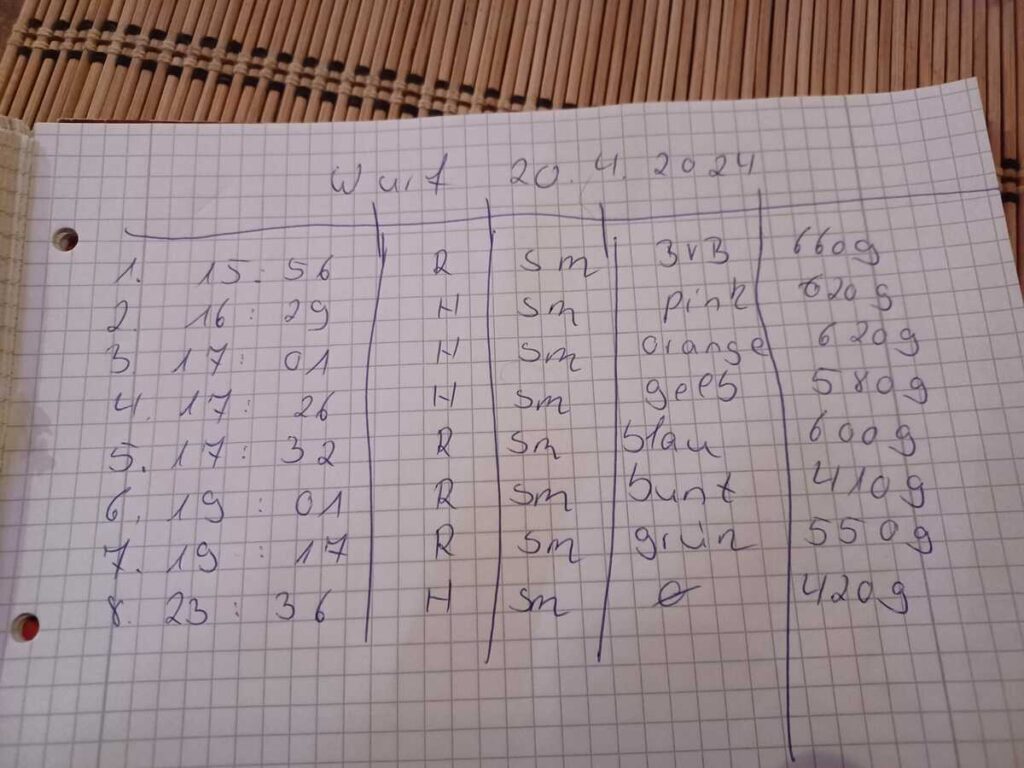 Wurf 20.4.2024
1. 15:56 R Sm BvB 660g
2. 16:29 H Sm pink 620g
3 17:01 H Sm orange 620g
4. 17:26 H Sm gelb 580g
5. 17:32 R Sm blau 600g
6. 19:01 R Sm bunt 410g
7. 19:17 R Sm grün 550g
8. 23:36 H Sm 420g